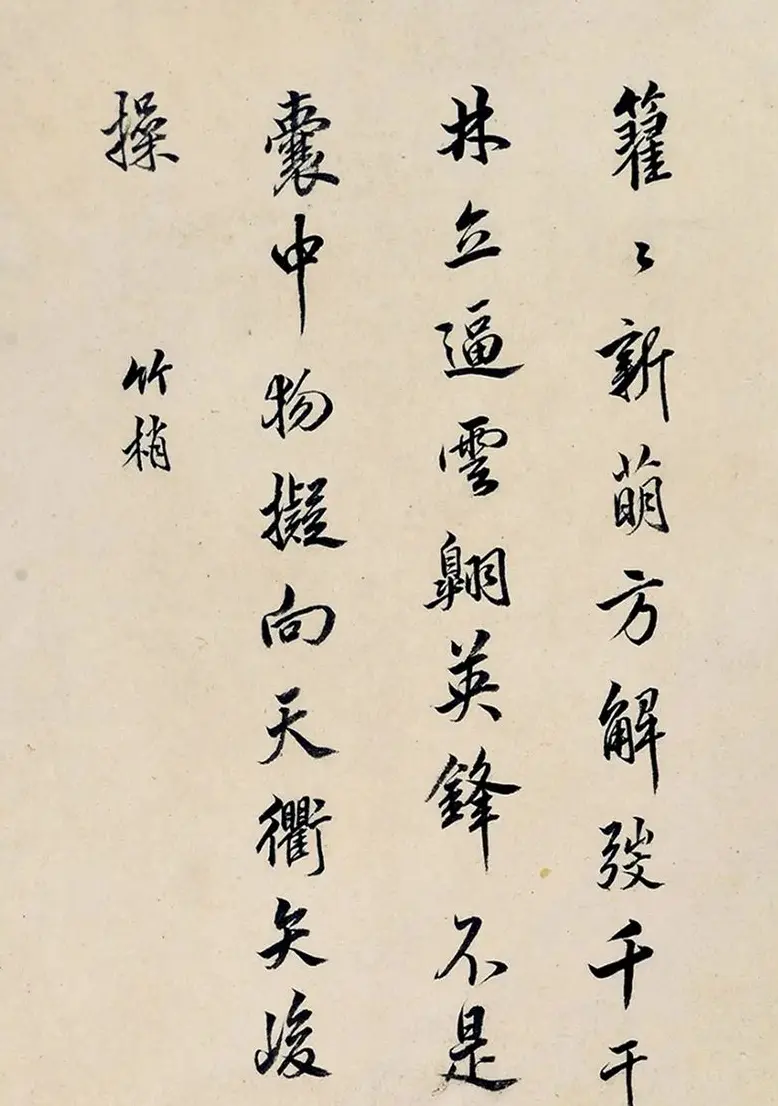 籊〻新萌方解弢千干
林立逼雲翺英鋒不是
囊中物擬向天衢矢峻
操
竹梢